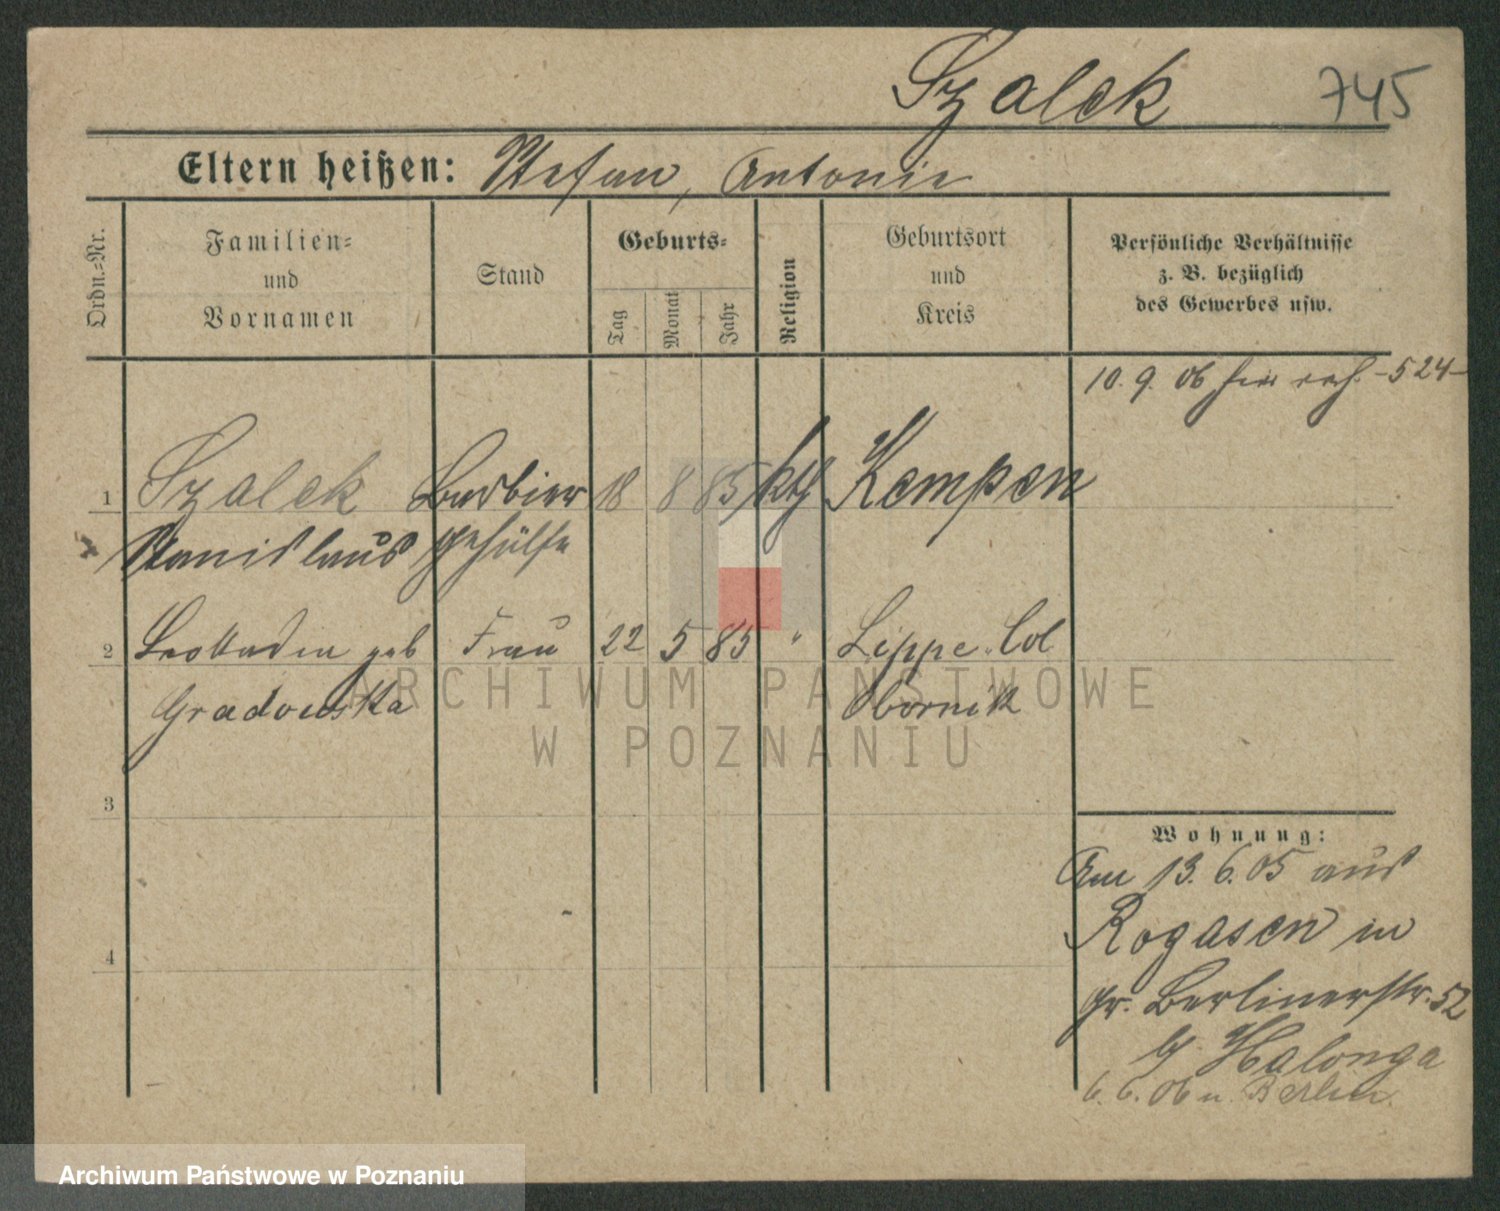 Szalek 745
Eltern heißen: Stefan, Antonie
Ordn.-Nr.
Familien-
und
Vornamen
Stand
Geburts-
Tag
Monat
Jahr
Religion
Geburtsort
und
Kreis
Persönliche Verhältnisse
z. B. bezüglich
des Gewerbes usw.
10. 9. 06 -524-
1 Szalek Barbier 18 8 85 kth Kempen
Stanislaus Gehülfe
2 Leokadia geb Frau 22 5 85 " Lippe. Col
Gradowska Obornik
3
4
Wohnung:
Am 13. 6. 05 aus
Rogasen in
gr. Berlinerstr. 52
b Halonga
6. 6. 06 n. Berlin.
ARCHIWUM PAŃSTWOWE
W POZNANIU
Archiwum Państwowe w Poznaniu